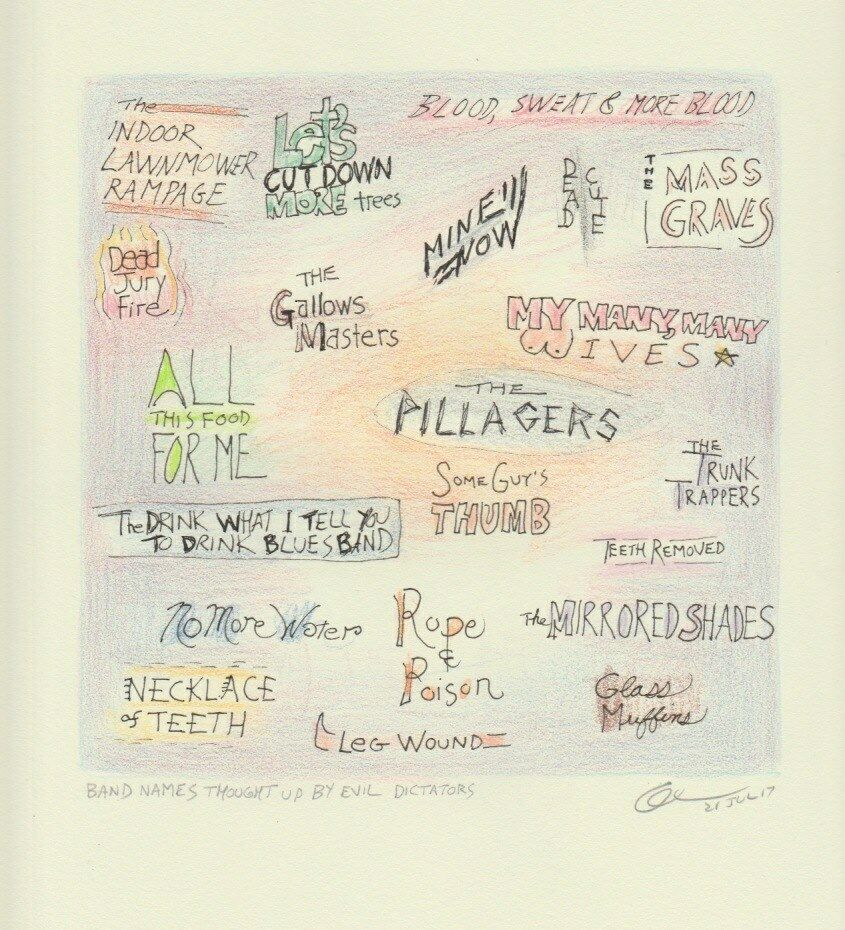 The
INDOOR
LAWNMOWER
RAMPAGE
Let's
CUT DOWN
MORE trees
BLOOD, SWEAT & MORE BLOOD
MINE!!
NOW
DEAD
CUTE
THE
MASS
GRAVES
Dead
Jury
Fire
THE
Gallows
Masters
MY MANY, MANY
WIVES
ALL
THIS FOOD
FOR ME
THE
PILLAGERS
SOME GUY'S
THUMB
THE
TRUNK
TRAPPERS
The DRINK WHAT I TELL YOU
TO DRINK BLUES BAND
TEETH REMOVED
No More Voters
Rope
&
Poison
The MIRRORED SHADES
NECKLACE
of TEETH
Glass
Muffins
LEG WOUND
BAND NAMES THOUGHT UP BY EVIL DICTATORS
21 JUL 17